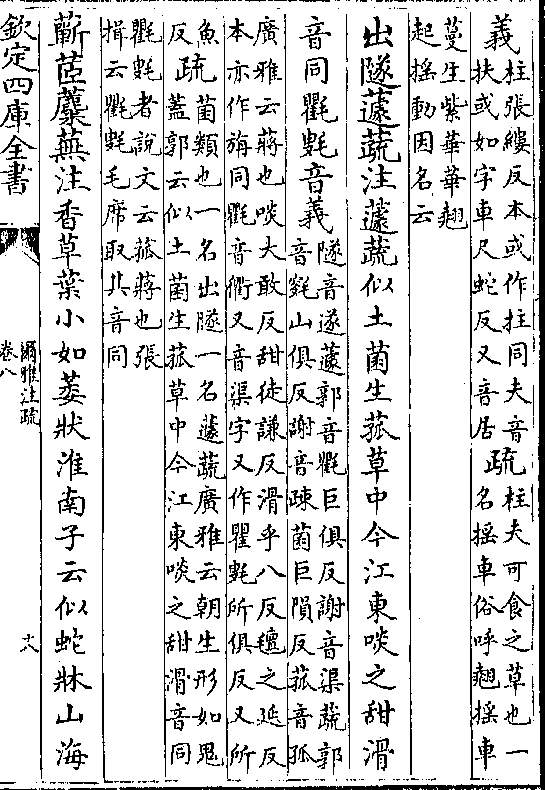 義柱張縷反本或作拄同夫音
扶或如字車尺蛇反又音居
疏柱夫可食之草也一
名搖車俗呼翹搖車
蔓生紫華華翹
起搖動因名云
出隧蘧蔬注蘧蔬似土菌生菰草中今江東啖之甜滑
音同氍毹音義
隧音遂蘧郭音氍巨俱反謝音渠蔬郭
音毹山俱反謝音疎菌巨隕反菰音孤
廣雅云蔣也啖大敢反甜徒謙反滑乎八反氊之延反
本亦作旃同氍音衢又音渠字又作瞿毹所俱反又所
魚反疏
菌類也一名出隧一名蘧蔬廣雅云朝生形如鬼
葢郭云似土菌生菰草中今江東啖之甜滑音同
氍毹者說文云菰蔣也張
揖云氍毹毛席取其音同
蘄茝蘪蕪注香草葉小如萎狀淮南子云似蛇牀山海
欽定四庫全書
爾雅注疏
卷八
十八